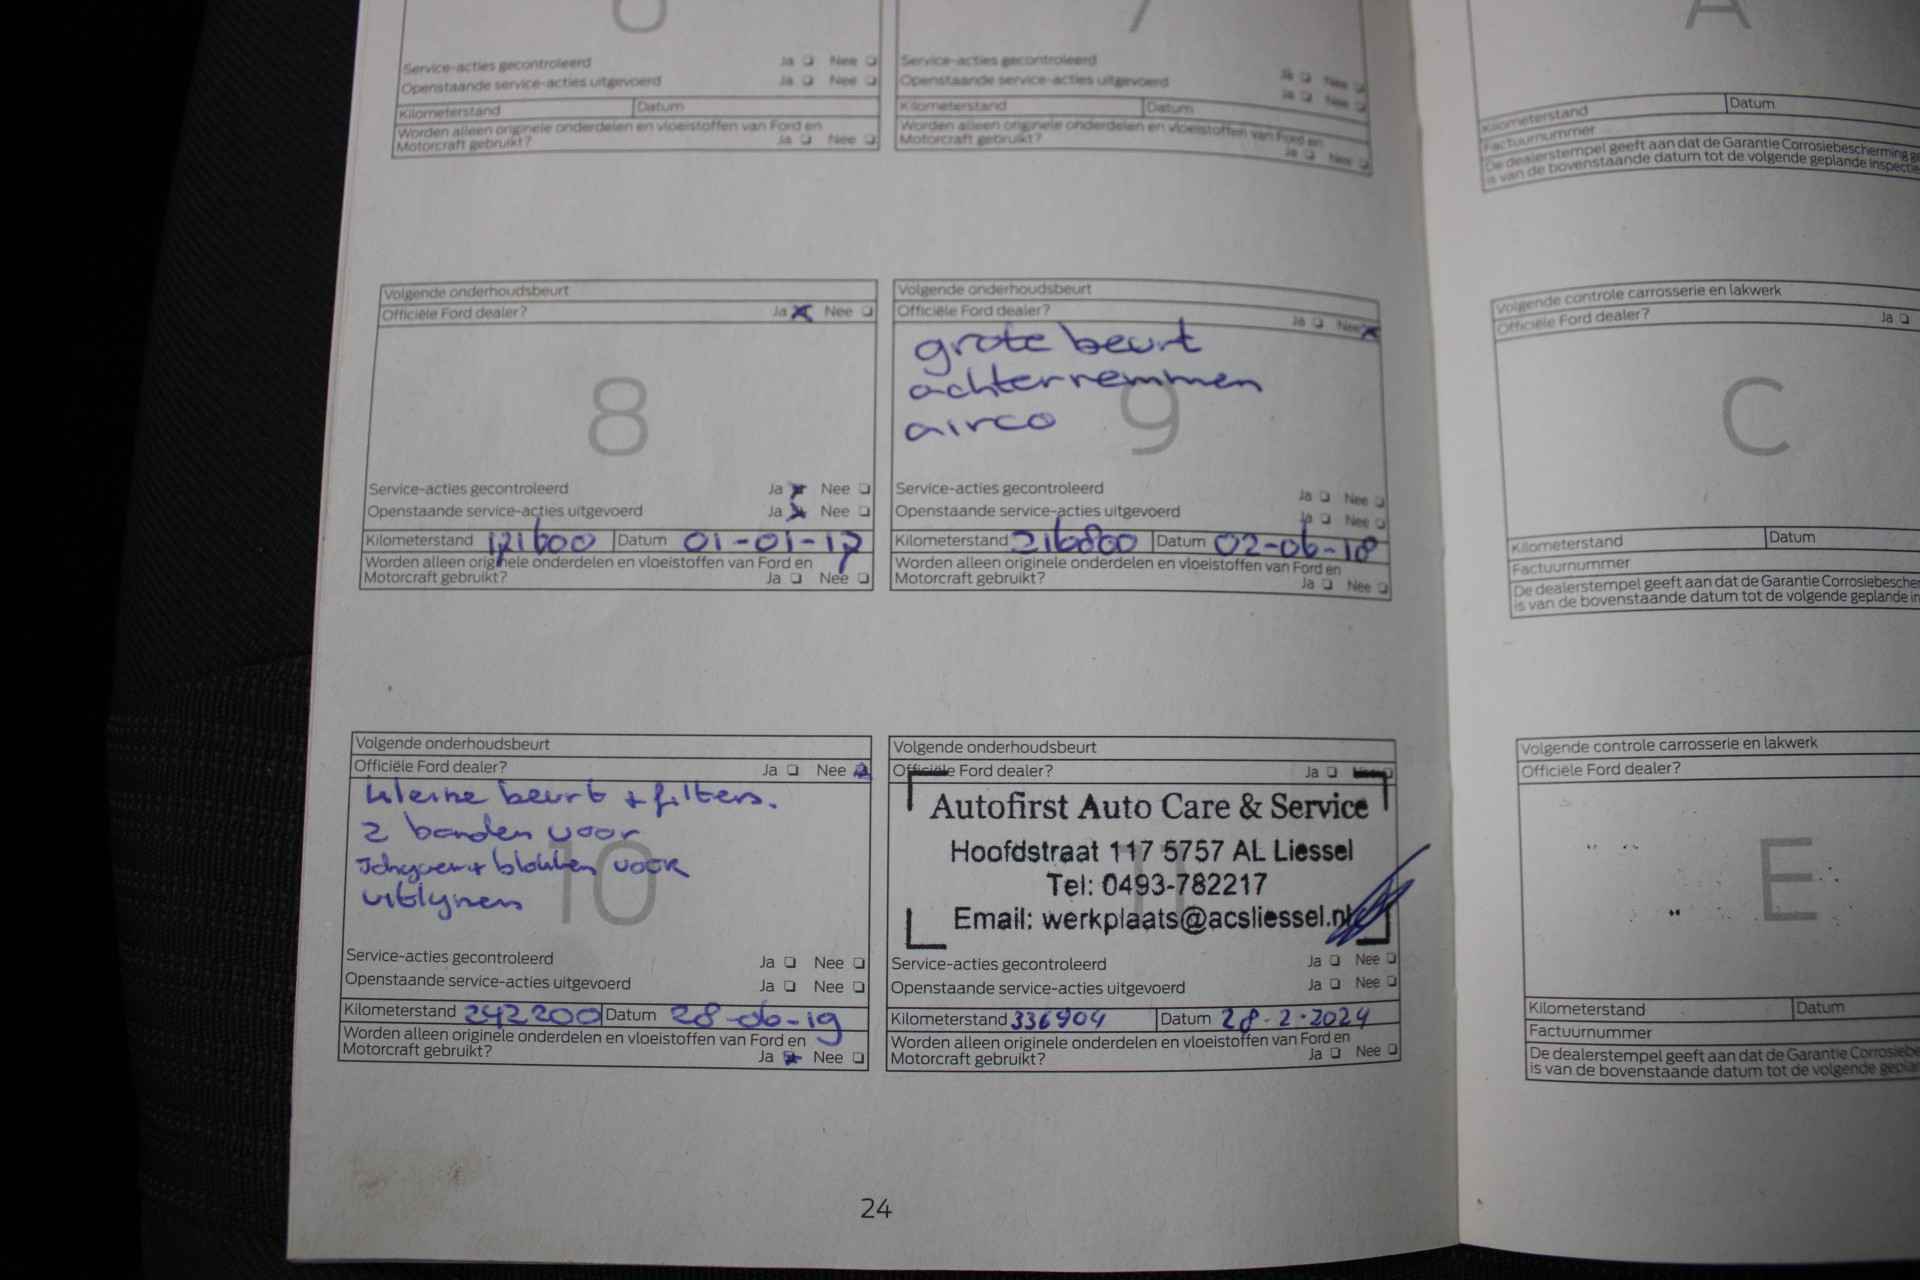 6
Service-acties gecontroleerd Ja Nee
Openstaande service-acties uitgevoerd Ja Nee
Kilometerstand Datum
Worden alleen originele onderdelen en vloeistoffen van Ford en
Motorcraft gebruikt? Ja Nee
7
Service-acties gecontroleerd Ja Nee
Openstaande service-acties uitgevoerd Ja Nee
Kilometerstand Datum
Worden alleen originele onderdelen en vloeistoffen van Ford en
Motorcraft gebruikt? Ja Nee
Volgende onderhoudsbeurt
Officiële Ford dealer? Ja Nee
8
Service-acties gecontroleerd Ja Nee
Openstaande service-acties uitgevoerd Ja Nee
Kilometerstand 171600 Datum 01-01-17
Worden alleen originele onderdelen en vloeistoffen van Ford en
Motorcraft gebruikt? Ja Nee
Volgende onderhoudsbeurt
Officiële Ford dealer? Ja Nee
grote beurt
achterremmen
airco
9
Service-acties gecontroleerd Ja Nee
Openstaande service-acties uitgevoerd Ja Nee
Kilometerstand 216800 Datum 02-06-18
Worden alleen originele onderdelen en vloeistoffen van Ford en
Motorcraft gebruikt? Ja Nee
Volgende onderhoudsbeurt
Officiële Ford dealer? Ja Nee
kleine beurt + filters.
2 banden voor
blokken voor
uitlijnen
10
Service-acties gecontroleerd Ja Nee
Openstaande service-acties uitgevoerd Ja Nee
Kilometerstand 242200 Datum 28-06-19
Worden alleen originele onderdelen en vloeistoffen van Ford en
Motorcraft gebruikt? Ja Nee
Volgende onderhoudsbeurt
Officiële Ford dealer? Ja Nee
Autofirst Auto Care & Service
Hoofdstraat 117 5757 AL Liessel
Tel: 0493-782217
Email: werkplaats@acsliessel.nl
11
Service-acties gecontroleerd Ja Nee
Openstaande service-acties uitgevoerd Ja Nee
Kilometerstand 336904 Datum 28-2-2024
Worden alleen originele onderdelen en vloeistoffen van Ford en
Motorcraft gebruikt? Ja Nee
24
A
Kilometerstand Datum
Factuurnummer
De dealerstempel geeft aan dat de Garantie Corrosiebescherming
is van de bovenstaande datum tot de volgende geplande inspectie
Volgende controle carrosserie en lakwerk
Officiële Ford dealer? Ja
C
Kilometerstand Datum
Factuurnummer
De dealerstempel geeft aan dat de Garantie Corrosiebesche
is van de bovenstaande datum tot de volgende geplande in
Volgende controle carrosserie en lakwerk
Officiële Ford dealer?
E
Kilometerstand Datum
Factuurnummer
De dealerstempel geeft aan dat de Garantie Corrosiebe
is van de bovenstaande datum tot de volgende geplan